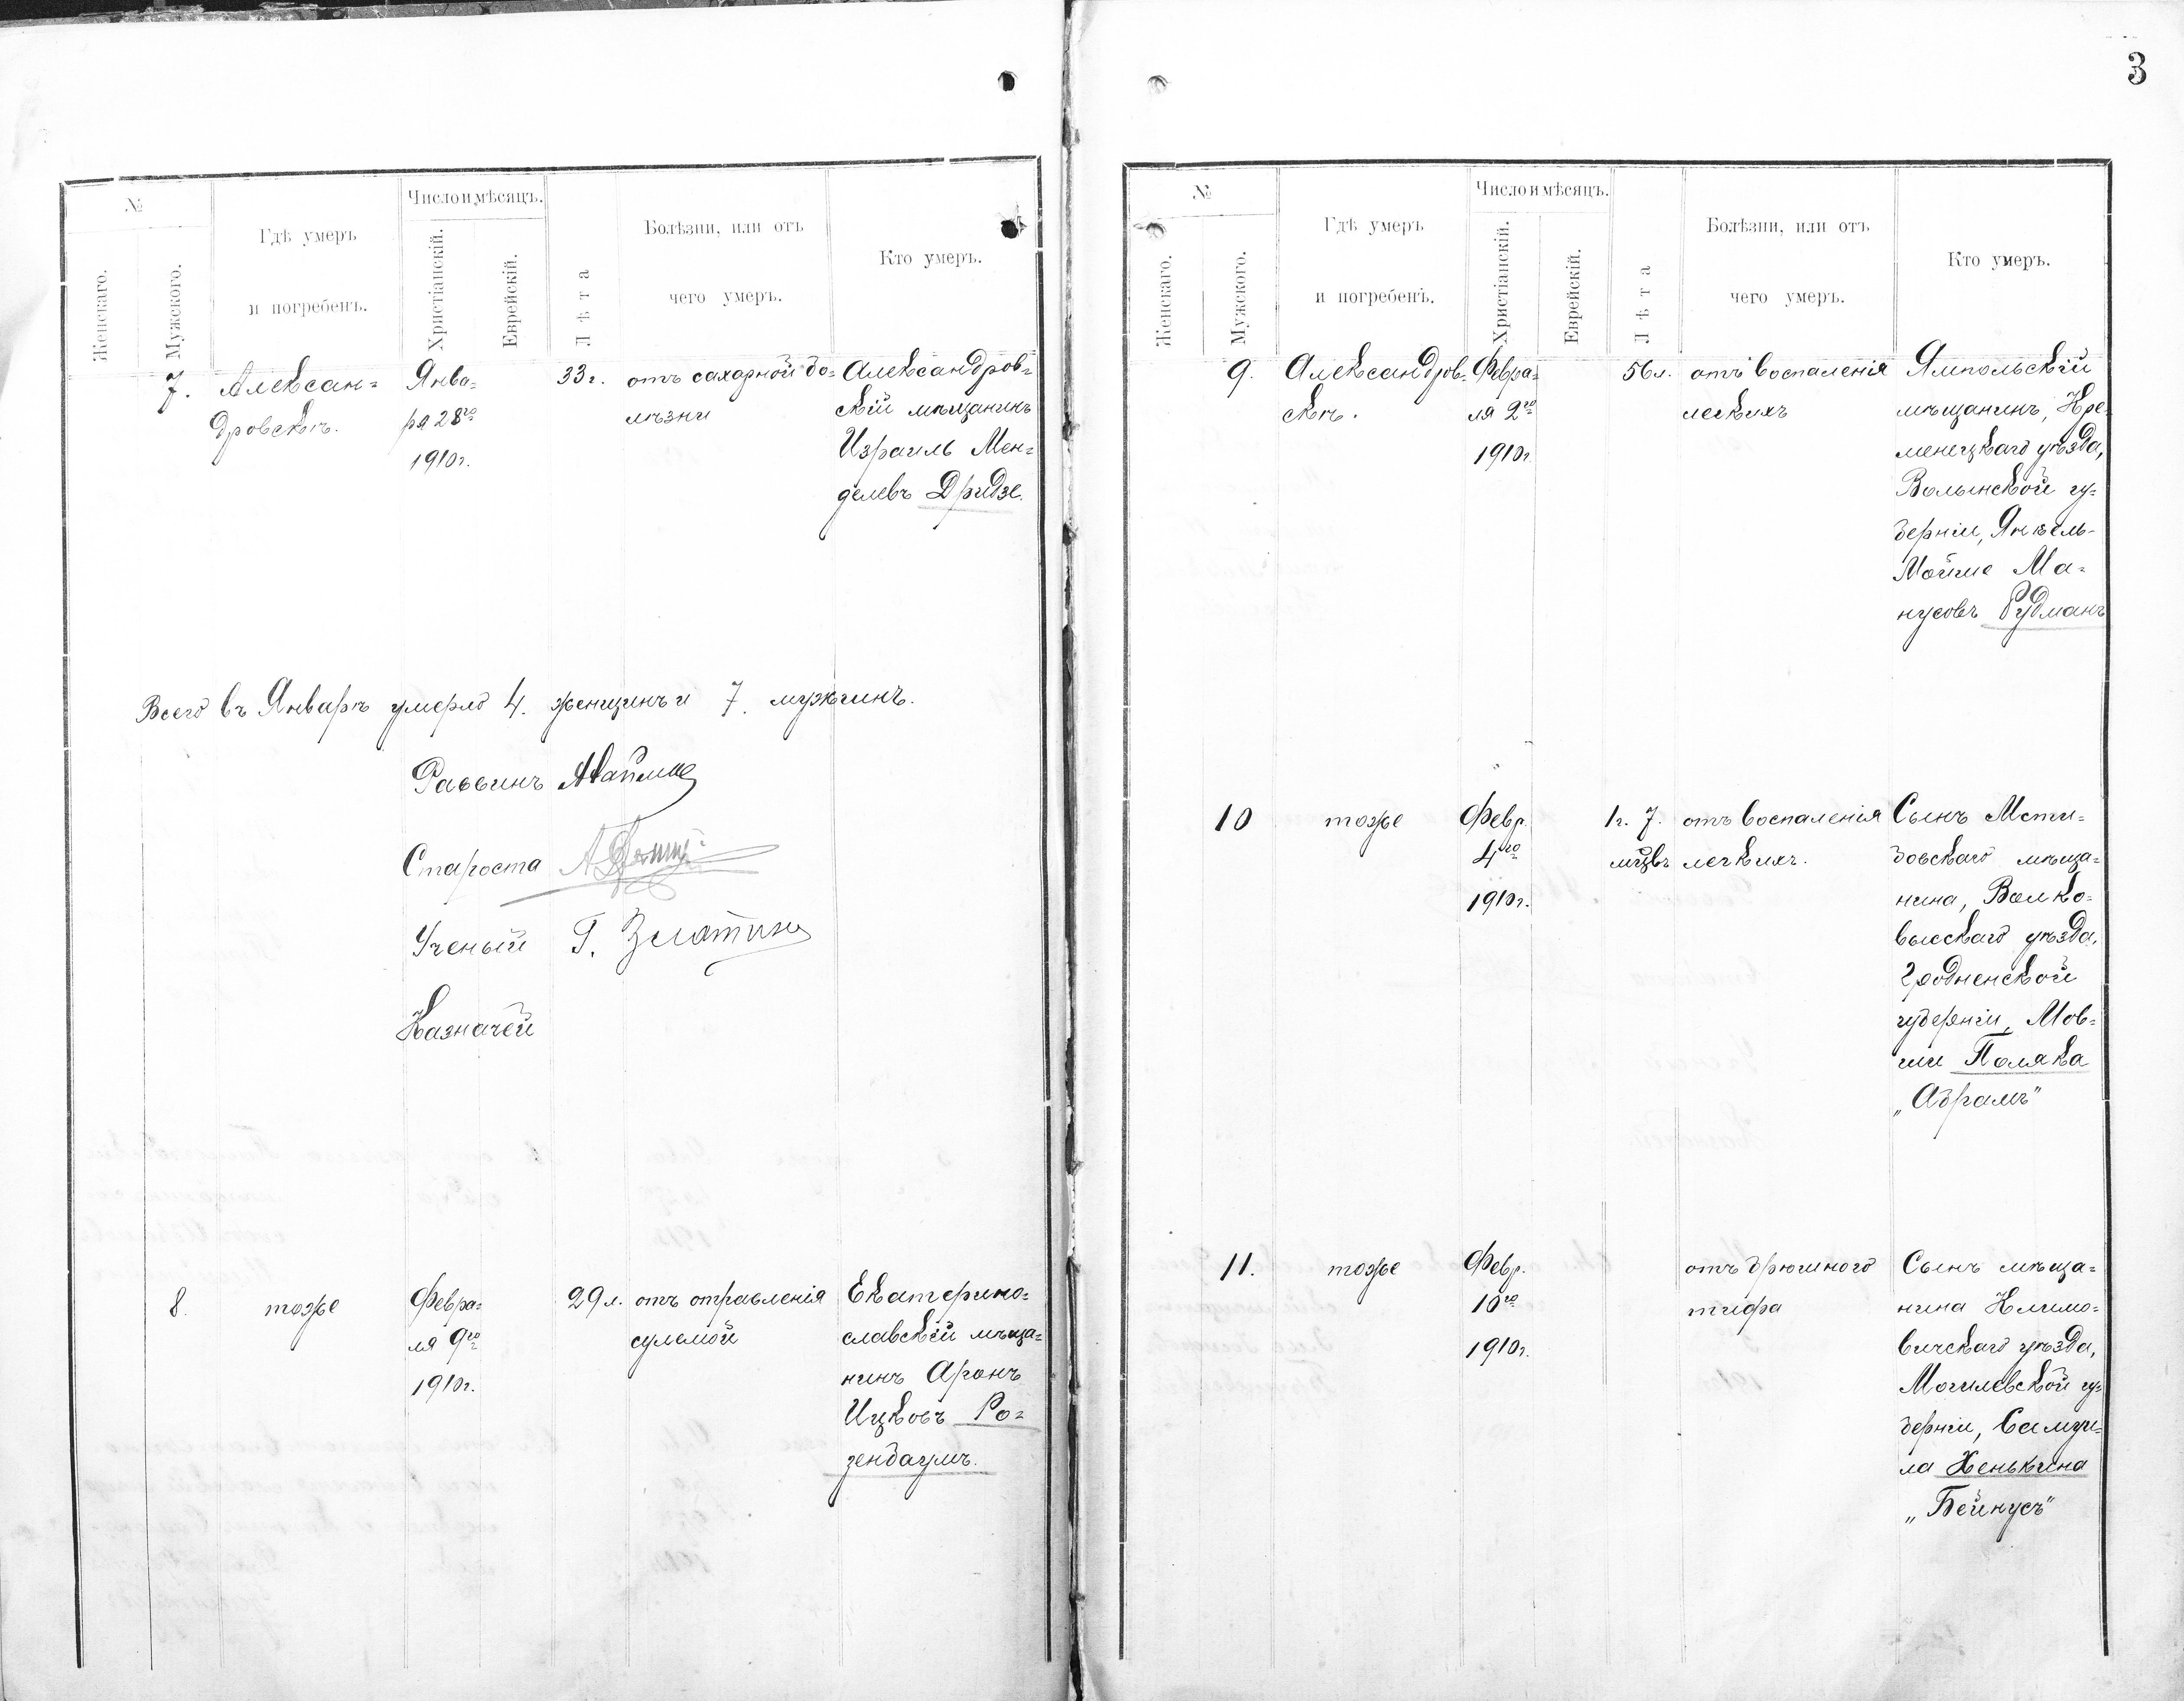 3
№
Женскаго.
Мужского.
Гдѣ умеръ
и погребенъ.
Число и мѣсяцъ.
Христіанскій.
Еврейскій.
Лѣта
Болѣзни, или отъ
чего умеръ.
Кто умеръ.
7.
Алексан=
дровскъ.
Янва=
ря 28го
1910г.
33г.
отъ сахарной бо=
лѣзни
Александров=
скій мѣщанинъ
Израиль Мен=
делевъ Дридзе.
Всего въ Январѣ умерло 4. женщинъ и 7. мужчинъ.
Раввинъ
Староста
Ученый Г. Златкин
Казначей
8.
тоже
Февра=
ля 9го
1910г.
29л.
отъ отравленія
сулемой
Екатерино=
славскій мѣща=
нинъ Аронъ
Ицковъ Ро=
зенбаумъ.
№
Женскаго.
Мужского.
Гдѣ умеръ
и погребенъ.
Число и мѣсяцъ.
Христіанскій.
Еврейскій.
Лѣта
Болѣзни, или отъ
чего умеръ.
Кто умеръ.
9.
Александров=
скъ.
Февра=
ля 2го
1910г.
56л.
отъ воспаленія
легкихъ
Ямпольскій
мѣщанинъ, Кре=
менецкаго уѣзда,
Волынской гу=
берніи, Янкель-
Мойше Ма=
нусовъ Рудманъ
10
тоже
Февр.
4го
1910г.
1г. 7.
мѣцвъ
отъ воспаленія
легкихъ.
Сынъ Мсти=
бовскаго мѣща=
нина, Волко=
выскаго уѣзда,
Гродненской
губерніи, Мов=
ши Поляка
„Абрамъ"
11.
тоже
Февр.
10го
1910г.
отъ брюшного
тифа
Сынъ мѣща=
нина Климо=
вичскаго уѣзда,
Могилевской гу=
берніи, Самуи=
ла Хенькина
„Бейнусъ"